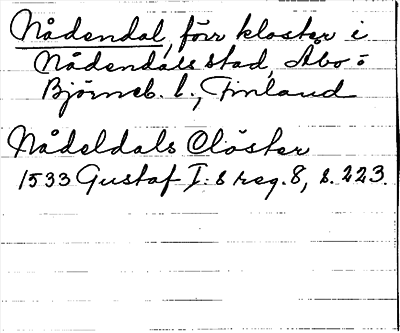 Nådendal, förr kloster i
Nådendals stad, Åbo o
Björneb. l., Finland
Nådeldals Clöster
1533 Gustaf I:s reg. 8, s. 223.